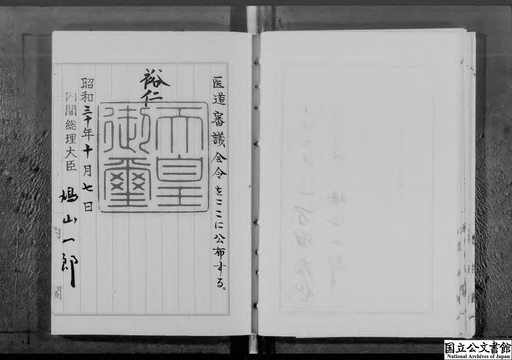 医道審議会令をここに公布する。
裕仁
天皇
御璽
昭和三十年十月七日
内閣総理大臣
鳩山一郎
国立公文書館
National Archives of Japan